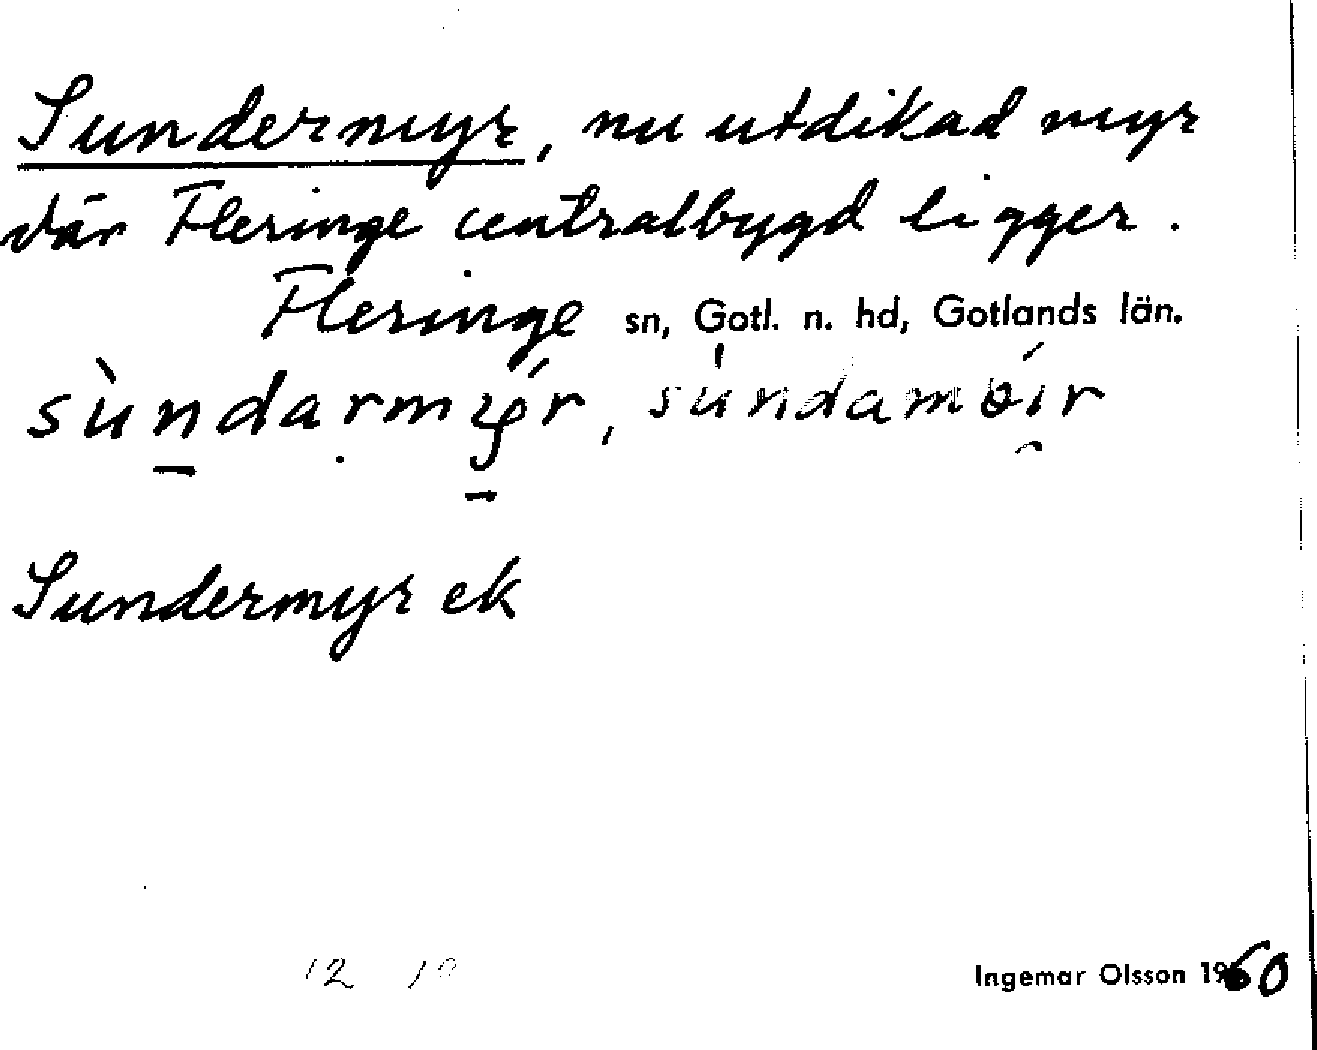 Sundermyr, nu utdikad myr
där Fleringe centralbygd ligger.
Fleringe sn, Gotl. n. hd, Gotlands län.
sùndarmýr, sùndamöír
Sundermyr ek
12 10
Ingemar Olsson 1960